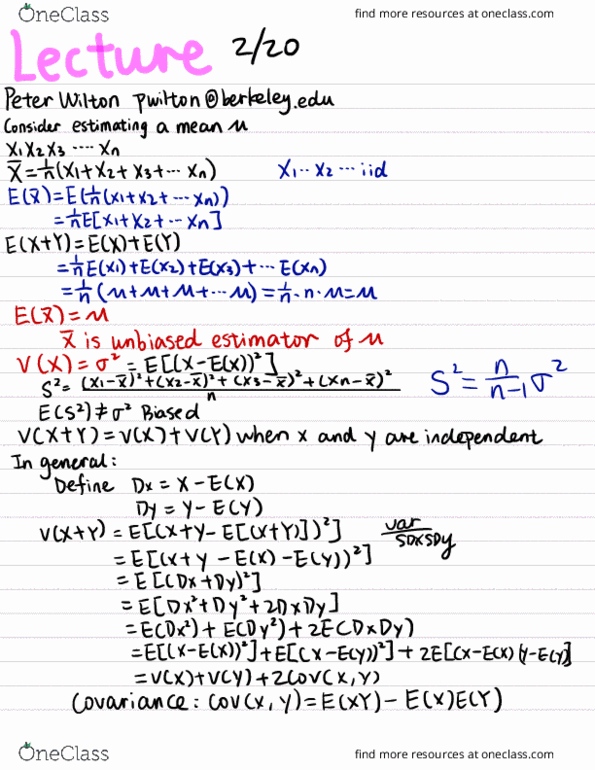 OneClass
find more resources at oneclass.com
Lecture 2/20
Peter Wilton pwilton@berkeley.edu
Consider estimating a mean μ
X1 X2 X3 ···· Xn
X̄ = 1/n(X1+X2+X3+··· Xn) X1·· X2 ··· iid
E(x̄) = E(1/n(X1+X2+··· Xn))
= 1/n E[X1+X2+·· Xn]
E(X+Y) = E(X)+E(Y)
= 1/n E(X1)+E(X2)+E(X3)+··· E(Xn)
= 1/n (μ+μ+μ+··· μ) = 1/n · n · μ = μ
E(x̄) = μ
x̄ is unbiased estimator of μ
V(X) = σ² = E[(X-E(X))²]
S² = (X1-X̄)²+(X2-X̄)²+(X3-X̄)²+(Xn-X̄)² / n S² = n/n-1 σ²
E(S²) ≠ σ² Biased
V(X+Y) = V(X)+V(Y) when x and y are independent
In general:
Define Dx = X - E(X)
Dy = Y - E(Y)
V(X+Y) = E[(X+Y - E[(X+Y)])²] var / SDxSDy
= E[(x+y - E(X) - E(Y))²]
= E[(Dx+Dy)²]
= E[Dx²+Dy²+2DxDy]
= E(Dx²)+E(Dy²)+2E(DxDy)
= E[(X-E(X))²]+E[(X-E(Y))²]+2E[(X-E(X)(Y-E(Y)]
= V(X)+V(Y)+2COV(X,Y)
Covariance: COV(X,Y) = E(XY) - E(X)E(Y)
OneClass
find more resources at oneclass.com